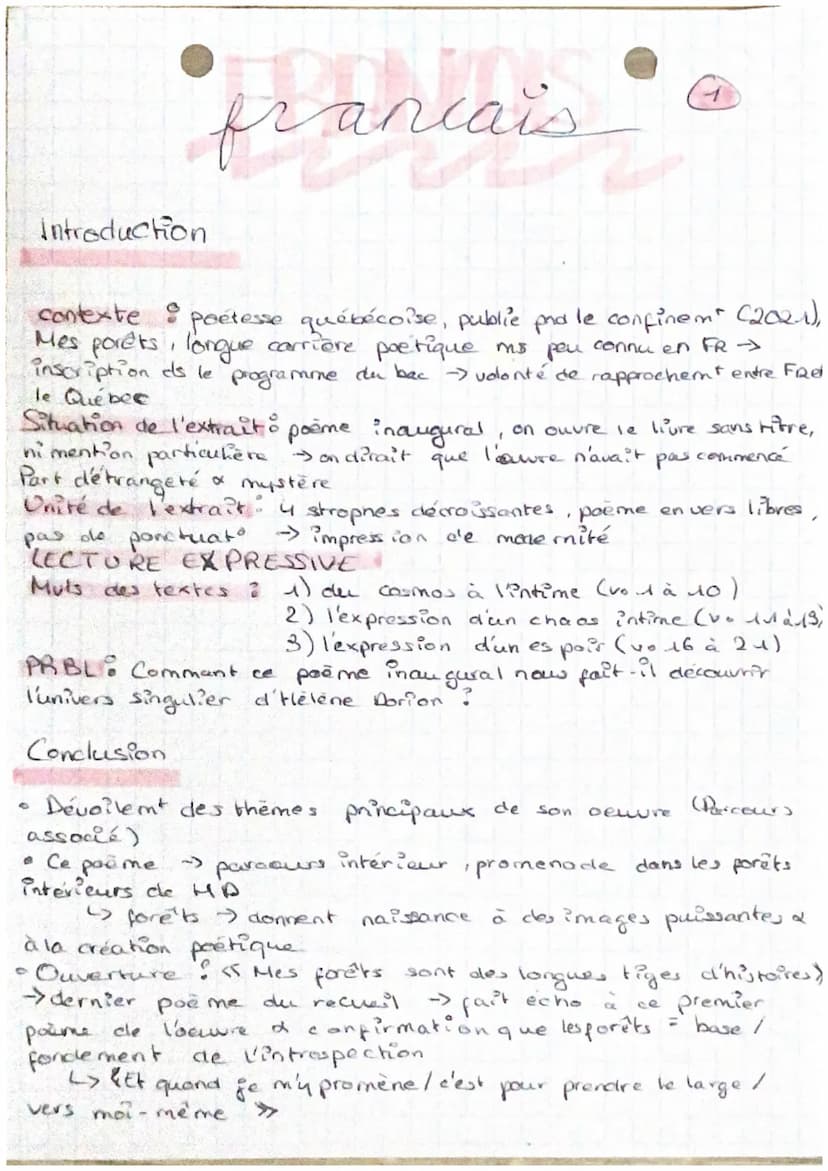 FRANÇAIS
français
1
Introduction
contexte : poétesse québécoise, publie pnd le confinemt (2021),
Mes forêts, longue carrière poétique ms peu connu en FR →
inscription ds le programme du bac → volonté de rapprochemt entre FR et
le Québec
Situation de l'extrait : poème inaugural, on ouvre le livre sans titre,
ni mention particulière → on dirait que l'œuvre n'avait pas commencé
Part d'étrangeté & mystère
Unité de l'extrait : 4 strophes décroissantes, poème en vers libres,
pas de ponctuat° → impression de modernité
LECTURE EXPRESSIVE
Mvts des textes : 1) du cosmos à l'intime (v. 1 à 10)
2) l'expression d'un chaos intime (v. 11 à 15)
3) l'expression d'un espoir (v. 16 à 21)
PRBL : Comment ce poème inaugural nous fait-il découvrir
l'univers singulier d'Hélène Dorion ?
Conclusion
• Dévoilemt des thèmes principaux de son oeuvre (Parcours
associé)
• Ce poème → parcours intérieur, promenade dans les forêts
intérieurs de HD
↳ forêts → donnent naissance à des images puissantes &
à la création poétique
• Ouverture : « Mes forêts sont des longues tiges d'histoires »
→ dernier poème du recueil → fait écho à ce premier
poème de l'oeuvre & confirmation que les forêts = base /
fondement de l'introspection
↳ « Et quand je m'y promène / c'est pour prendre le large /
vers moi-même »